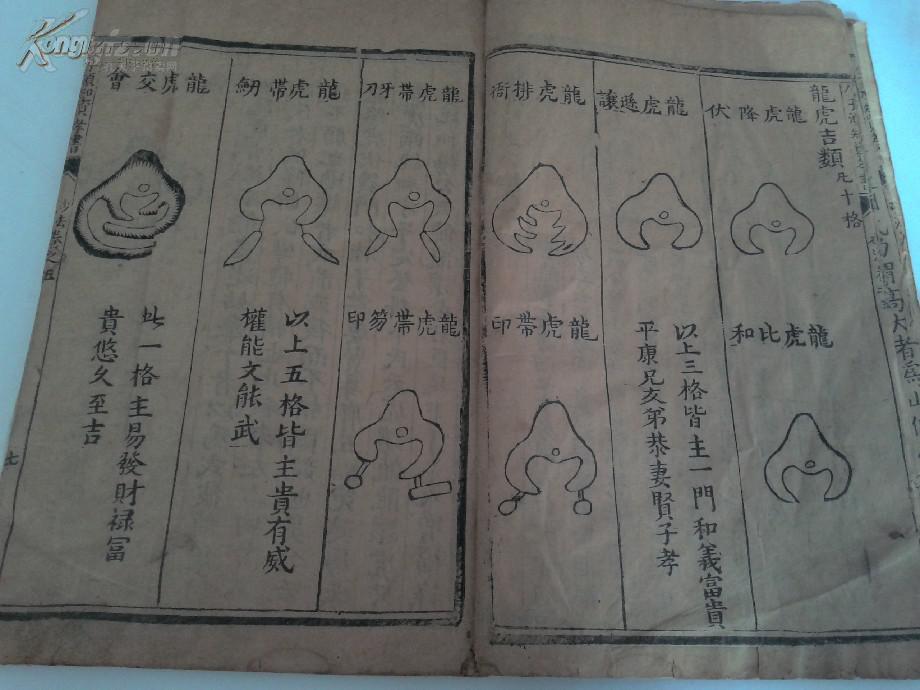 龍虎吉類凡十格
龍虎降伏
龍虎比和
龍虎遜讓
以上三格皆主一門和義富貴
平康兄友弟恭妻賢子孝
龍虎排衙
龍虎帶印
龍虎帶牙刀
龍虎帶笏印
龍虎帶劒
以上五格皆主貴有威
權能文能武
龍虎交會
此一格主易發財禄冨
貴悠久至吉
七